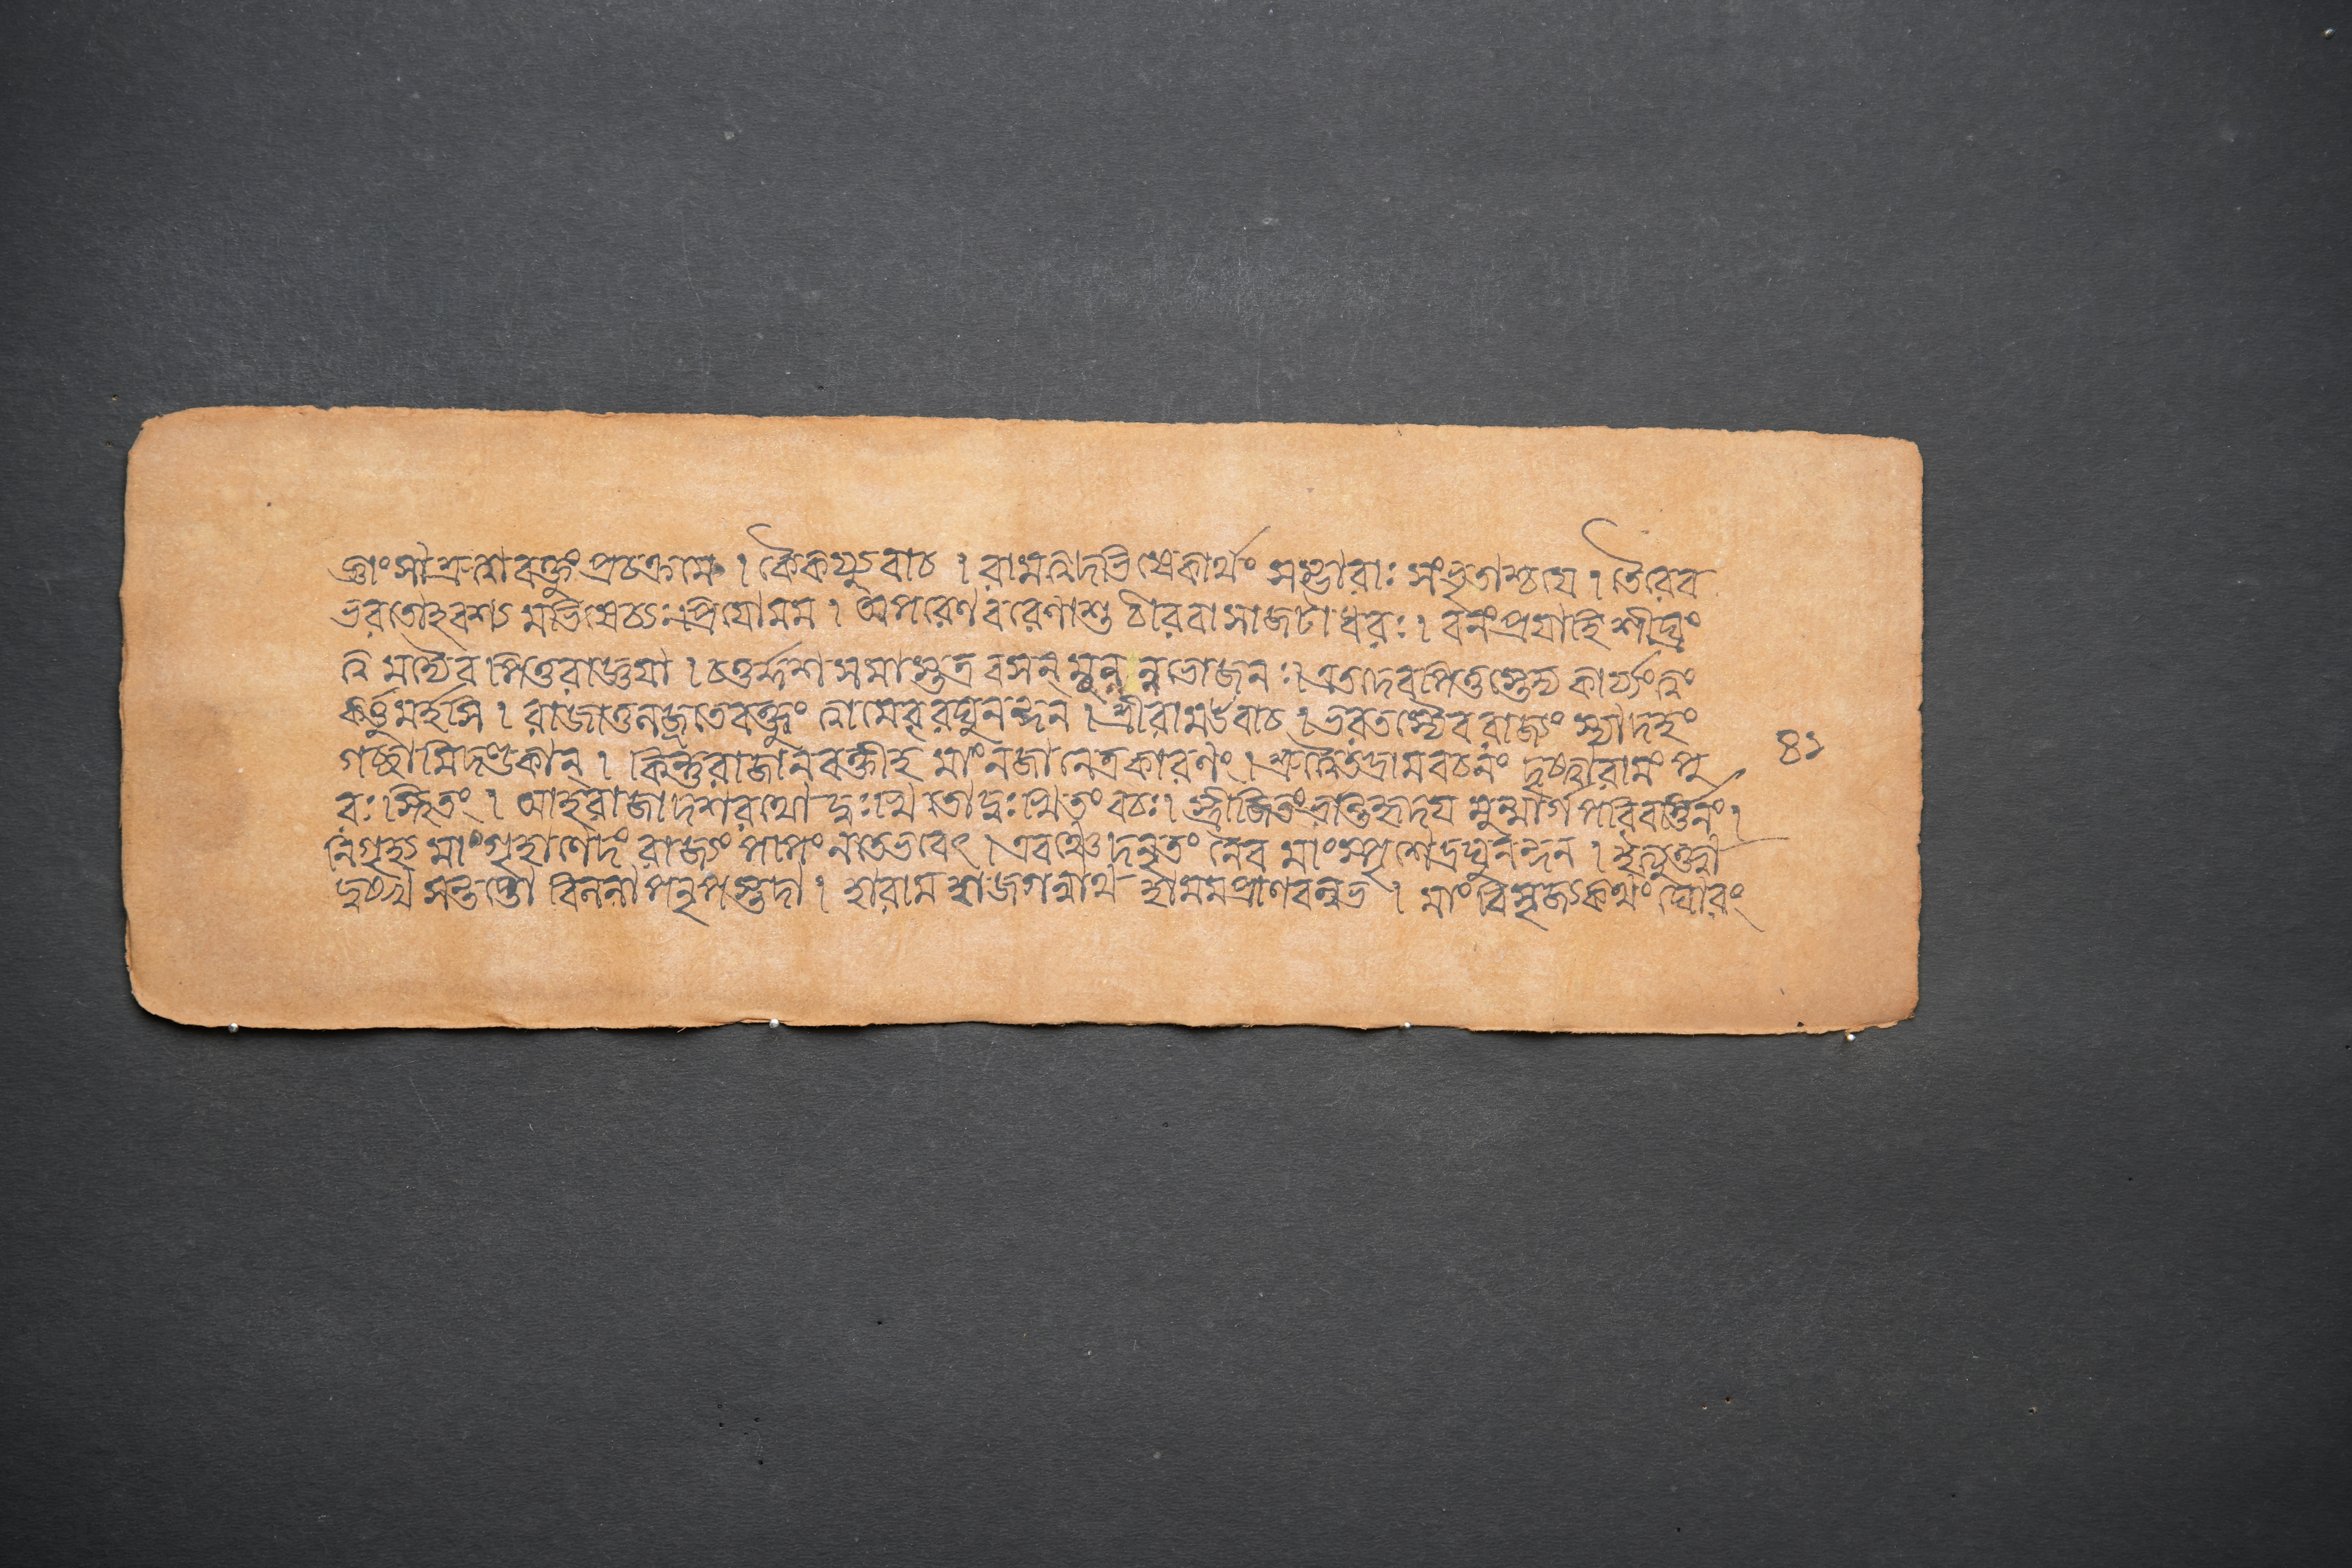 সম্ভারাঃ সংভৃতাশ্চযে । তৈরেব
ভরতোহবশ্য মভিষেচ্যঃপ্রিযোমম । অপরেণ বরেণাশু চীরবাসাজটাধরঃ । বনংপ্রযাহি শীঘ্রং
ত্ব মদ্যৈব পিতুরাজ্ঞযা । চতুর্দ্দশ সমাস্তত্র বসন্ মুন্যন্নভোজনঃ । এতদেবপিতুস্তেদ্য কার্য্যংত্বং
কর্ত্তুমর্হসি । রাজাতুলজ্জতেবক্তুং ত্বামেবংরঘুনন্দন । শ্রীরামউবাচ । ভরতস্যৈব রাজ্যং স্যাদহং
গচ্ছামিদণ্ডকান্ । কিন্তুরাজানবক্তীহ মাংনজানেত্রকারণং । শ্রুত্বৈতদ্রামবচনং দৃষ্ট্বারামং পু ৪১
রঃ স্থিতং । প্রাহরাজাদশরথো দুঃখিতোদুঃখিতং বচঃ । স্ত্রীজিতংভ্রান্তহৃদয মুন্মার্গপরিবর্ত্তিনং ।
নিগৃহ্য মাং গৃহাণেদং রাজ্যং পাপং নতদ্ভবেৎ । এবঞ্চেদনৃতং নৈব মাং স্পৃশেদ্রঘুনন্দন । ইত্যুক্ত্বা
দুঃখ সন্তপ্তো বিললাপনৃপস্তদা । হারাম হাজগন্নাথ হামমপ্রাণবল্লভ । মাং বিসৃজ্যকথং ঘোরং